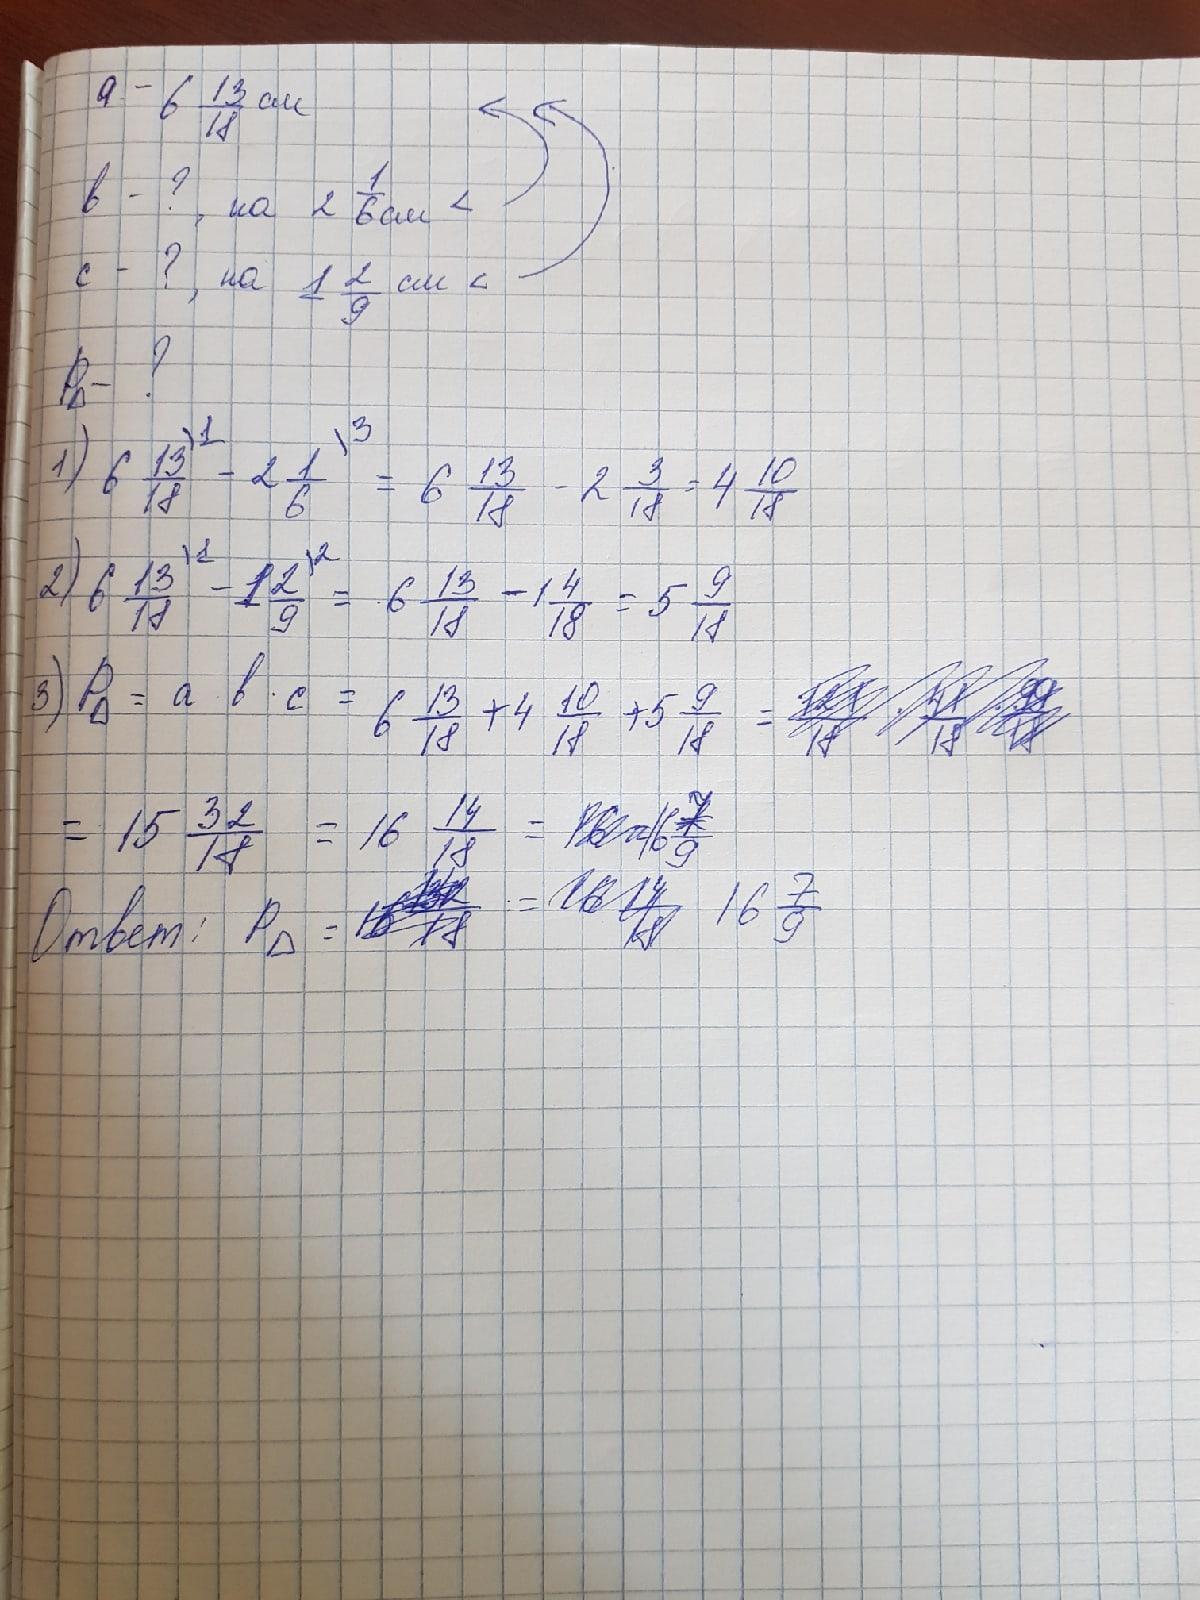 a - 6 13/18 см
в - ?, на 2 1/6 см <
с - ?, на 1 2/9 см <
P△ - ?
1) 6 13/18 \1 - 2 1/6 \3 = 6 13/18 - 2 3/18 = 4 10/18
2) 6 13/18 \1 - 1 2/9 \2 = 6 13/18 - 1 4/18 = 5 9/18
3) P△ = a · в · с = 6 13/18 + 4 10/18 + 5 9/18 =
= 15 32/18 = 16 14/18 = 16 7/9
Ответ: P△ = 16 7/9